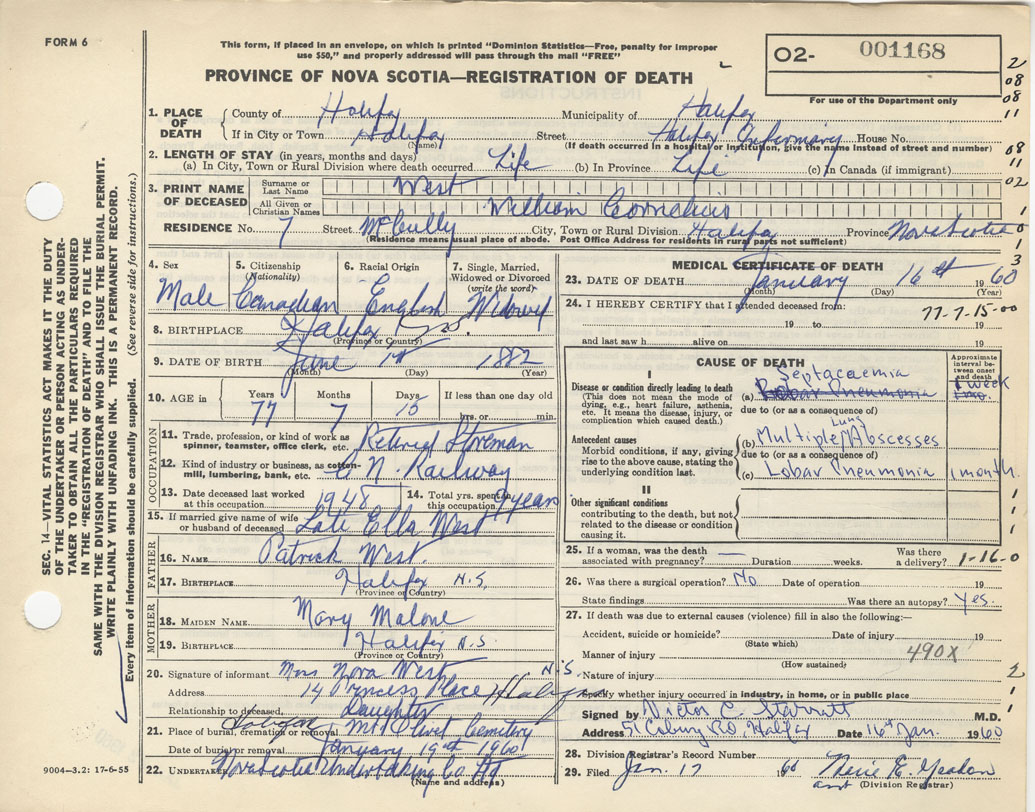 FORM 6
This form, if placed in an envelope, on which is printed "Dominion Statistics—Free, penalty for improper
use $50," and properly addressed will pass through the mail "FREE"
PROVINCE OF NOVA SCOTIA—REGISTRATION OF DEATH
O2- 001168
For use of the Department only
2
08
08
11
08
11
02
1
0
1
3
SEC. 14—VITAL STATISTICS ACT MAKES IT THE DUTY
OF THE UNDERTAKER OR PERSON ACTING AS UNDER-
TAKER TO OBTAIN ALL THE PARTICULARS REQUIRED
IN THE "REGISTRATION OF DEATH" AND TO FILE THE
SAME WITH THE DIVISION REGISTRAR WHO SHALL ISSUE THE BURIAL PERMIT.
WRITE PLAINLY WITH UNFADING INK. THIS IS A PERMANENT RECORD.
Every item of information should be carefully supplied. (See reverse side for instructions.)
1. PLACE OF DEATH County of Halifax Municipality of Halifax
If in City or Town Halifax (Name) Street Halifax Infirmary House No.
(If death occurred in a hospital or institution, give the name instead of street and number)
2. LENGTH OF STAY (in years, months and days)
(a) In City, Town or Rural Division where death occurred Life (b) In Province Life (c) In Canada (if immigrant)
3. PRINT NAME OF DECEASED Surname or Last Name West
All Given or Christian Names William Cornelius
RESIDENCE No. 7 Street McCully City, Town or Rural Division Halifax Province Nova Scotia
(Residence means usual place of abode. Post Office Address for residents in rural parts not sufficient)
4. Sex 5. Citizenship (Nationality) 6. Racial Origin 7. Single, Married, Widowed or Divorced (write the word)
Male Canadian English Widowed
8. BIRTHPLACE Halifax N.S.
(Province or Country)
9. DATE OF BIRTH June 1st 1882
(Month) (Day) (Year)
10. AGE in Years Months Days If less than one day old
77 7 15 hrs. or min.
OCCUPATION
11. Trade, profession, or kind of work as spinner, teamster, office clerk, etc. Retired Storeman
12. Kind of industry or business, as cotton-mill, lumbering, bank, etc. C. N. Railway
13. Date deceased last worked at this occupation 1948 14. Total yrs. spent this occupation years
15. If married give name of wife or husband of deceased Late Ella West
FATHER
16. NAME Patrick West
17. BIRTHPLACE Halifax N.S.
(Province or Country)
MOTHER
18. MAIDEN NAME Mary Malone
19. BIRTHPLACE Halifax N.S.
(Province or Country)
20. Signature of informant Miss Nora West
Address 14 Princess Place Halifax N.S.
Relationship to deceased Daughter
21. Place of burial, cremation or removal Halifax Mt Olivet Cemetery
Date of burial or removal January 19th 1960
22. UNDERTAKER Nova Scotia Undertaking Co Ltd
(Name and address)
9004—3.2: 17-6-55
MEDICAL CERTIFICATE OF DEATH
23. DATE OF DEATH January 16th 1960
(Month) (Day) (Year)
24. I HEREBY CERTIFY that I attended deceased from: 77-7-15-00
19 to 19
and last saw h alive on 19
CAUSE OF DEATH
Approximate interval between onset and death
I
Disease or condition directly leading to death
(This does not mean the mode of dying, e.g., heart failure, asthenia, etc. It means the disease, injury, or complication which caused death.)
Septacaemia
(a) Lobar Pneumonia 1 week
due to (or as a consequence of)
Antecedent causes
Morbid conditions, if any, giving rise to the above cause, stating the underlying condition last.
(b) Multiple Lung Abscesses
due to (or as a consequence of)
(c) Lobar Pneumonia 1 month.
II
Other significant conditions
contributing to the death, but not related to the disease or condition causing it.
25. If a woman, was the death associated with pregnancy? — Duration weeks. Was there a delivery? 1-16-0
26. Was there a surgical operation? No Date of operation 19
State findings Was there an autopsy? Yes.
27. If death was due to external causes (violence) fill in also the following:—
Accident, suicide or homicide? Date of injury 19
(State which)
Manner of injury 490X
(How sustained)
Nature of injury
Specify whether injury occurred in industry, in home, or in public place
Signed by Victor C. Starratt M.D.
Address 51 Coburg Rd, Halifax Date 16th Jan. 1960
28. Division Registrar's Record Number
29. Filed Jan. 17 1960
(Division Registrar)